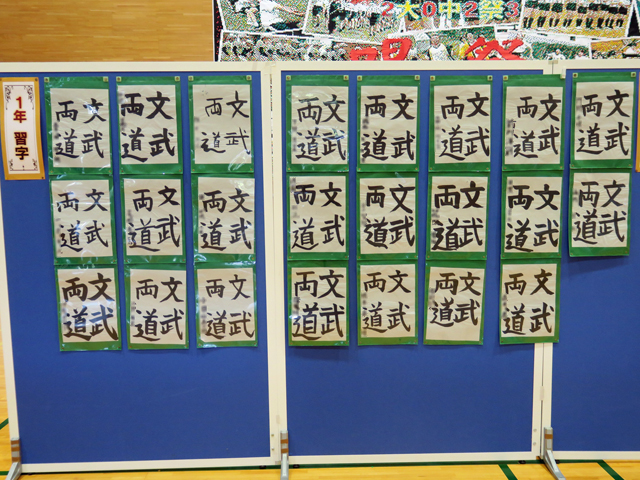 2大0中2祭3
1年 習字
文武
両道
文武
両道
文武
両道
文武
両道
文武
両道
文武
両道
文武
両道
文武
両道
文武
両道
文武
両道
文武
両道
文武
両道
文武
両道
文武
両道
文武
両道
文武
両道
文武
両道
文武
両道
文武
両道
文武
両道
文武
両道
文武
両道
文武
両道